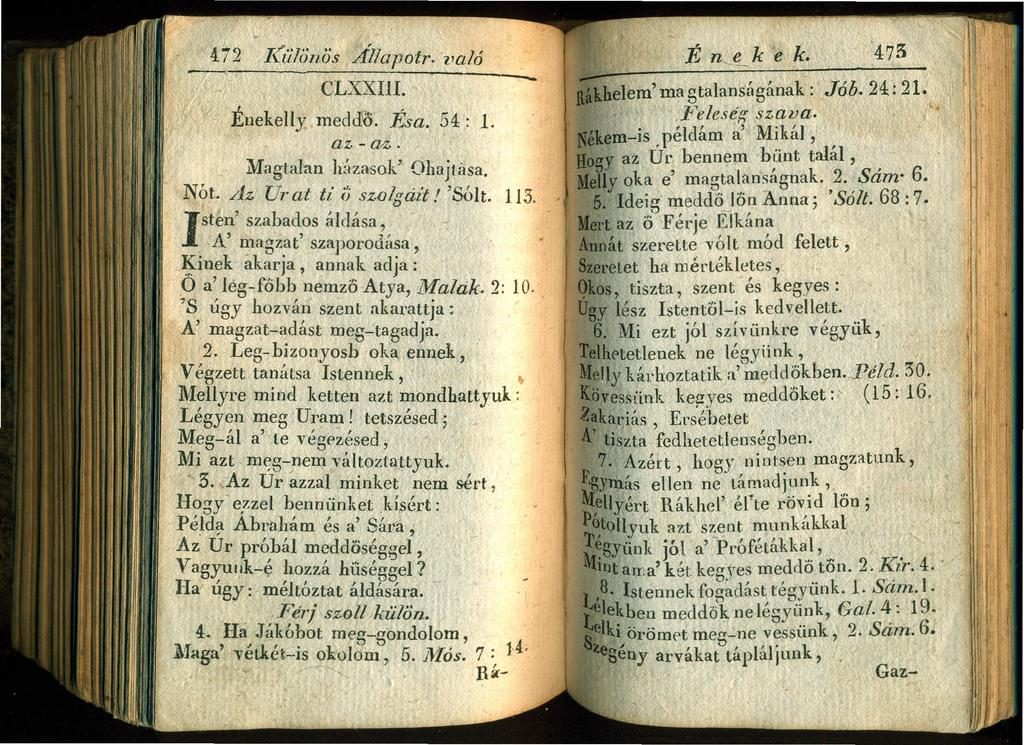 472 Különös Állapotr. való
CLXXIII.
Énekelly meddő. Ésa. 54: 1.
az - az.
Magtalan házasok' Ohajtása.
Nót. Az Urat ti ő szolgáit! 'Sólt. 113.
Isten' szabados áldása,
A' magzat' szaporodása,
Kinek akarja, annak adja:
Ő a' lég-főbb nemző Atya, Malak. 2: 10.
'S úgy hozván szent akarattja:
A' magzat-adást meg-tagadja.
2. Leg-bizonyosb oka ennek,
Végzett tanátsa Istennek,
Mellyre mind ketten azt mondhattyuk:
Légyen meg Uram! tetszésed;
Meg-ál a' te végezésed,
Mi azt meg-nem változtattyuk.
3. Az Úr azzal minket nem sért,
Hogy ezzel bennünket kísért:
Példa Ábrahám és a' Sára,
Az Úr próbál meddőséggel,
Vagyunk-é hozzá hűséggel?
Ha úgy: méltóztat áldására.
Férj szoll külön.
4. Ha Jákóbot meg-gondolom,
Maga' vétkét-is okolom, 5. Mós. 7: 14.
Rá-
Énekek. 473
Rákhelem' magtalanságának: Jób. 24: 21.
Feleség szava.
Nékem-is példám a' Mikál,
Hogy az Úr bennem bünt talál,
Melly oka e' magtalanságnak. 2. Sám. 6.
5. Ideig meddő lőn Anna; 'Sólt. 68: 7.
Mert az ő Férje Élkána
Annát szerette vólt mód felett,
Szeretet ha mértékletes,
Okos, tiszta, szent és kegyes:
Úgy lész Istentől-is kedvellett.
6. Mi ezt jól szívünkre végyük,
Telhetetlenek ne légyünk,
Melly kárhoztatik a' meddőkben. Péld. 30.
Kövessünk kegyes meddőket: (15: 16.
Zakariás, Ersébetet
A' tiszta fedhetetlenségben.
7. Azért, hogy nintsen magzatunk,
Egymás ellen ne támadjunk,
Mellyért Rákhel' él'te rövid lőn;
Pótollyuk azt szent munkákkal
Tégyünk jól a' Prófétákkal,
Mint ama' két kegyes meddő tőn. 2. Kir. 4.
8. Istennek fogadást tégyünk. 1. Sám. 1.
Lélekben meddők ne légyünk, Gal. 4: 19.
Lelki örömet meg-ne vessünk, 2. Sám. 6.
Szegény arvákat tápláljunk,
Gaz-